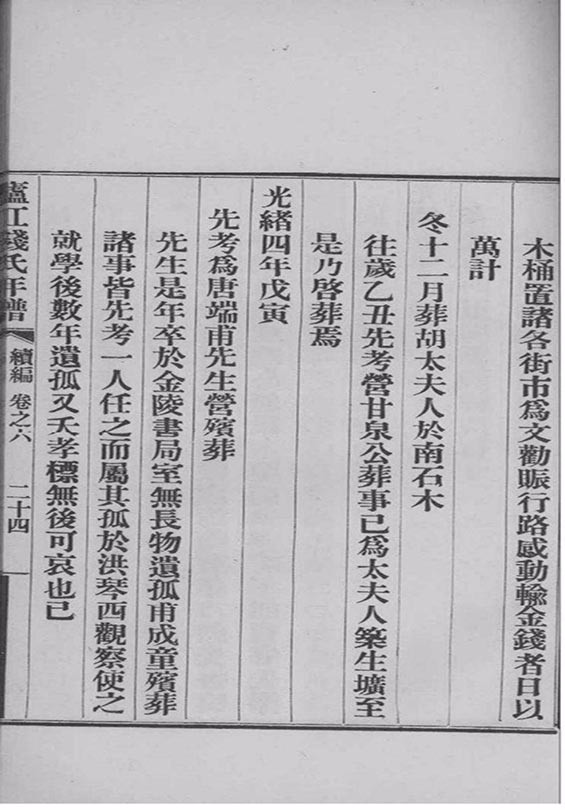 木桶置諸各街市為文勸賑行路感動輸金錢者日以
萬計
冬十二月葬胡太夫人於南石木
往歲乙丑先考營甘泉公葬事已為太夫人築生壙至
是乃啓葬焉
光緒四年戊寅
先考為唐端甫先生營殯葬
先生是年卒於金陵書局室無長物遺孤甫成童殯葬
諸事皆先考一人任之而屬其孤於洪琴西觀察使之
就學後數年遺孤又夭孝標無後可哀也已
廬江錢氏年譜 續編 卷之六 二十四